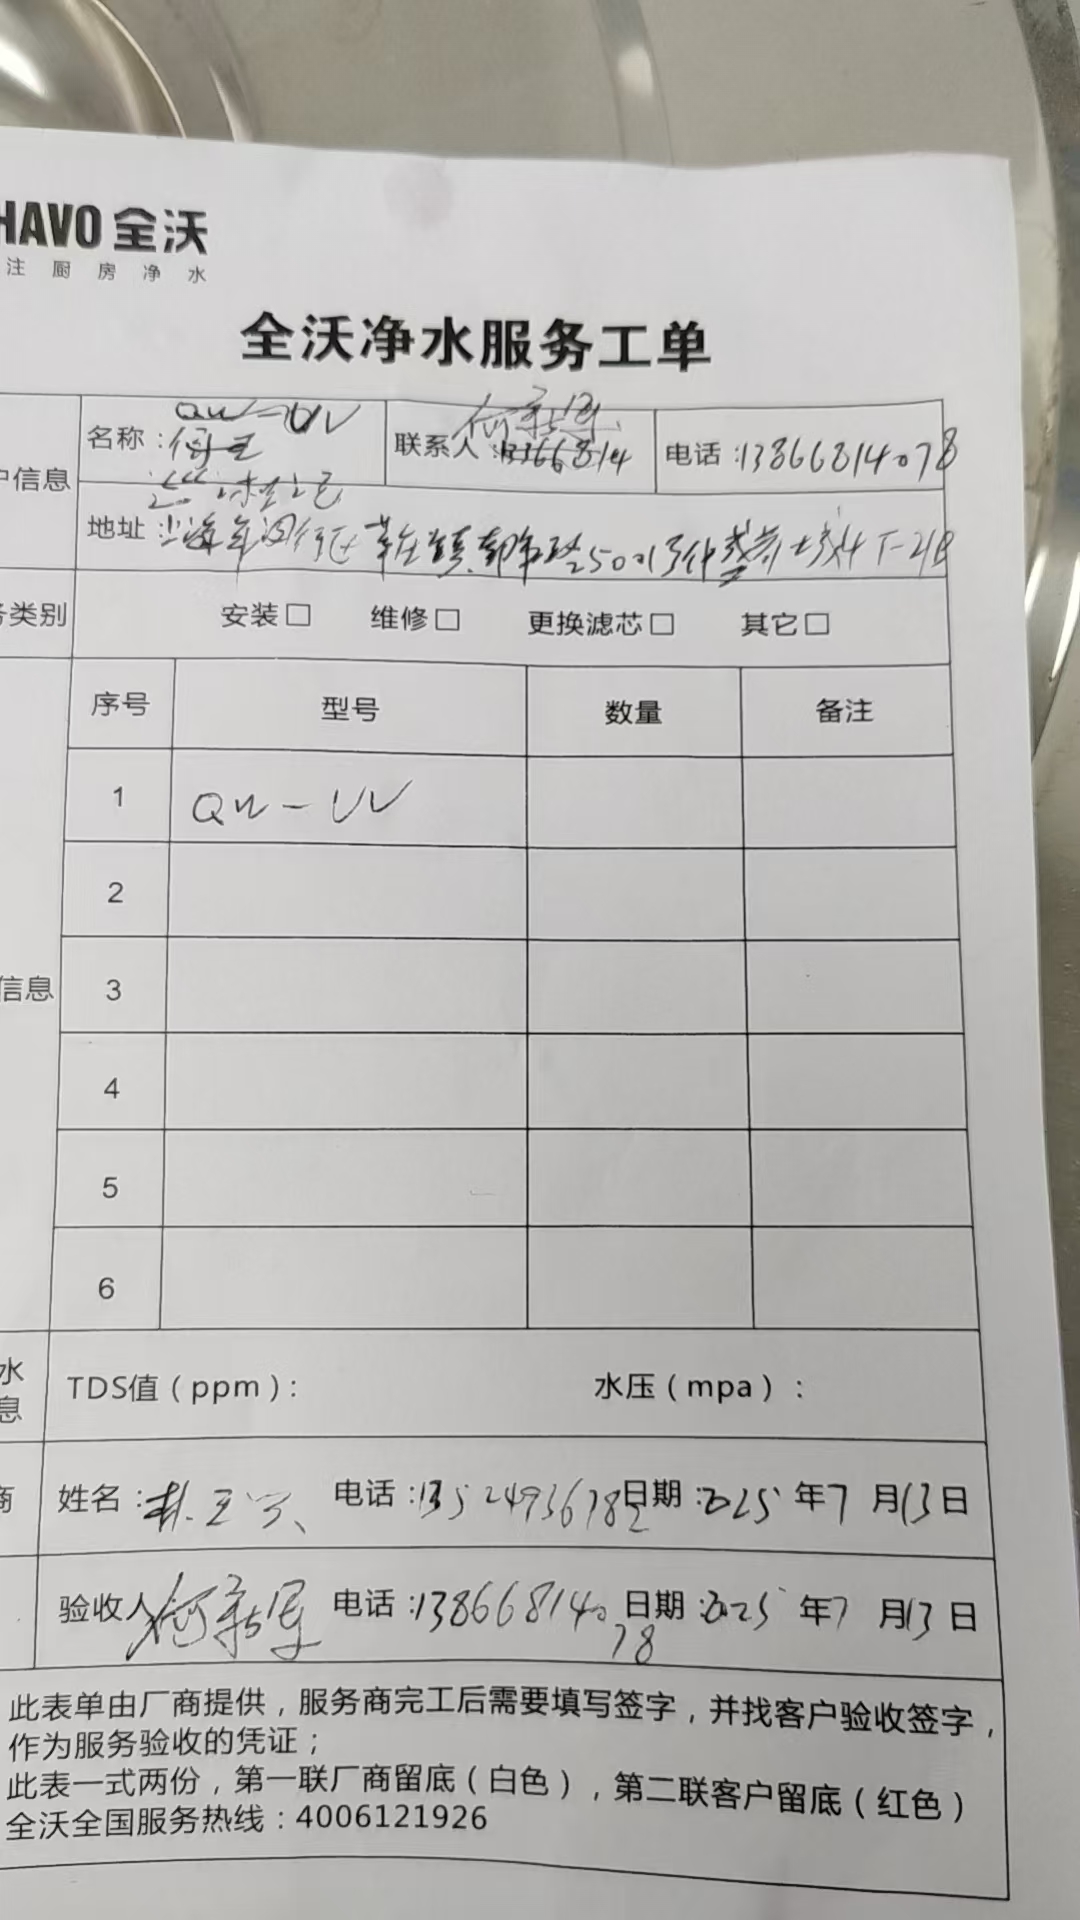 HAVO 全沃
注厨房净水
全沃净水服务工单
户信息
名称：QW-UV
联系人
电话：13866814078
地址：上海市闵行区莘庄镇都市路5001号仲盛
务类别
安装□ 维修□ 更换滤芯□ 其它□
序号 型号 数量 备注
1 QW-UV
2
信息
3
4
5
6
水
息
TDS值（ppm）： 水压（mpa）：
商
姓名： 电话：13524936782 日期：2025年7月13日
验收人 电话：13866814078 日期：2025年7月13日
此表单由厂商提供，服务商完工后需要填写签字，并找客户验收签字，
作为服务验收的凭证；
此表一式两份，第一联厂商留底（白色），第二联客户留底（红色）
全沃全国服务热线：4006121926